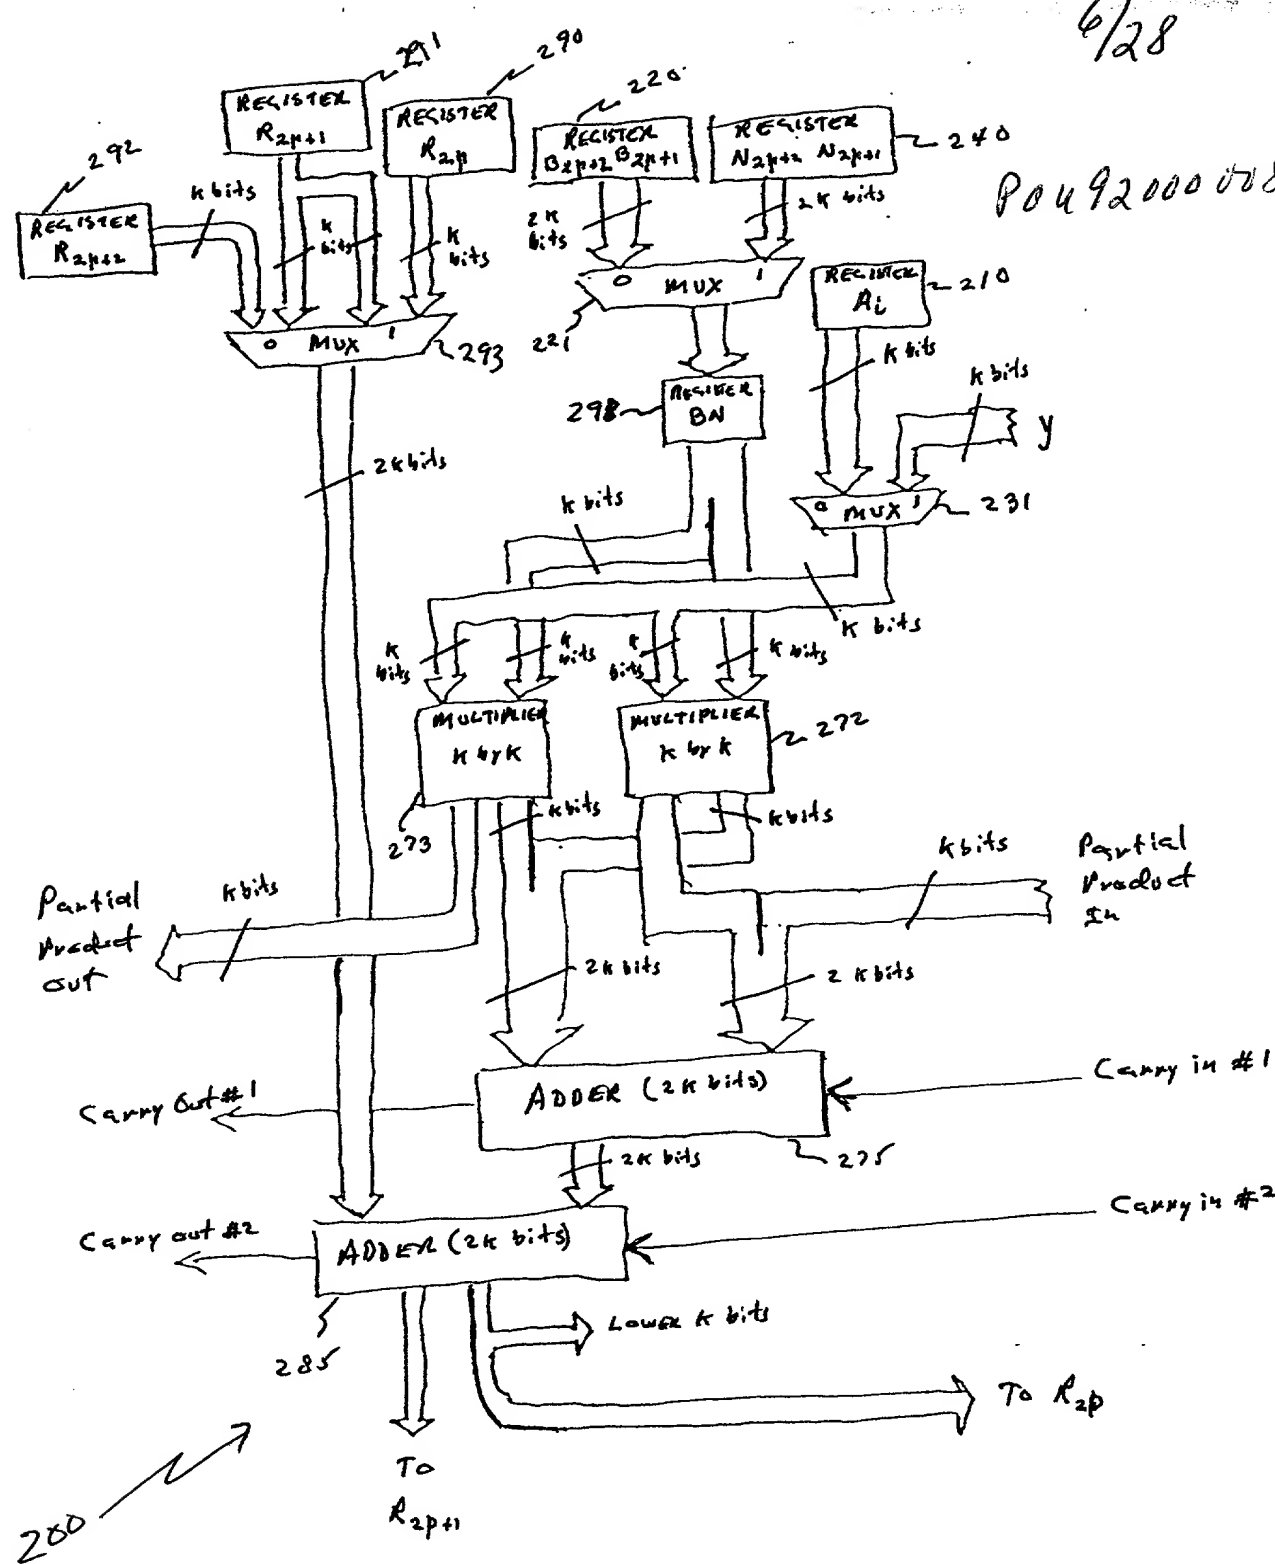 6/28
291
290
REGISTER
R2p+1
REGISTER
R2p
220
REGISTER
B2p+2 B2p+1
REGISTER
N2p+2 N2p+1
240
292
K bits
REGISTER
R2p+2
K
bits
K
bits
2K
bits
2K bits
POU92000008
0 MUX 1
221
REGISTER
Ai
210
0 MUX 1
293
K bits
REGISTER
BN
298
K bits
y
2K bits
K bits
0 MUX 1
231
K bits
K
bits
K
bits
K
bits
K bits
MULTIPLIER
K by K
MULTIPLIER
K by K
272
273
K bits
K bits
K bits
Partial
Product
In
Partial
Product
Out
K bits
2K bits
2K bits
Carry Out #1
ADDER (2K bits)
Carry in #1
2K bits
275
Carry out #2
ADDER (2K bits)
Carry in #2
285
LOWER K bits
To R2p
To
R2p+1
200